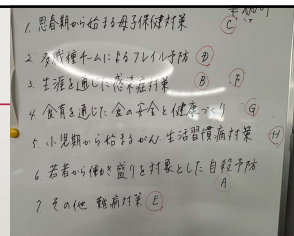 1. 思春期から始まる母子保健対策 C
2. 多職種チームによるフレイル予防 D
3. 生涯を通じた感染症対策 B F
4. 食育を通じた食の安全と健康づくり G
5. 小児期から始まるがん・生活習慣病対策 H
6. 若者から働き盛りを対象とした自殺予防 A
7. その他 難病対策 E